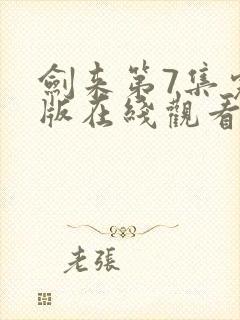 劍来第7集
版在綫觀看
老張